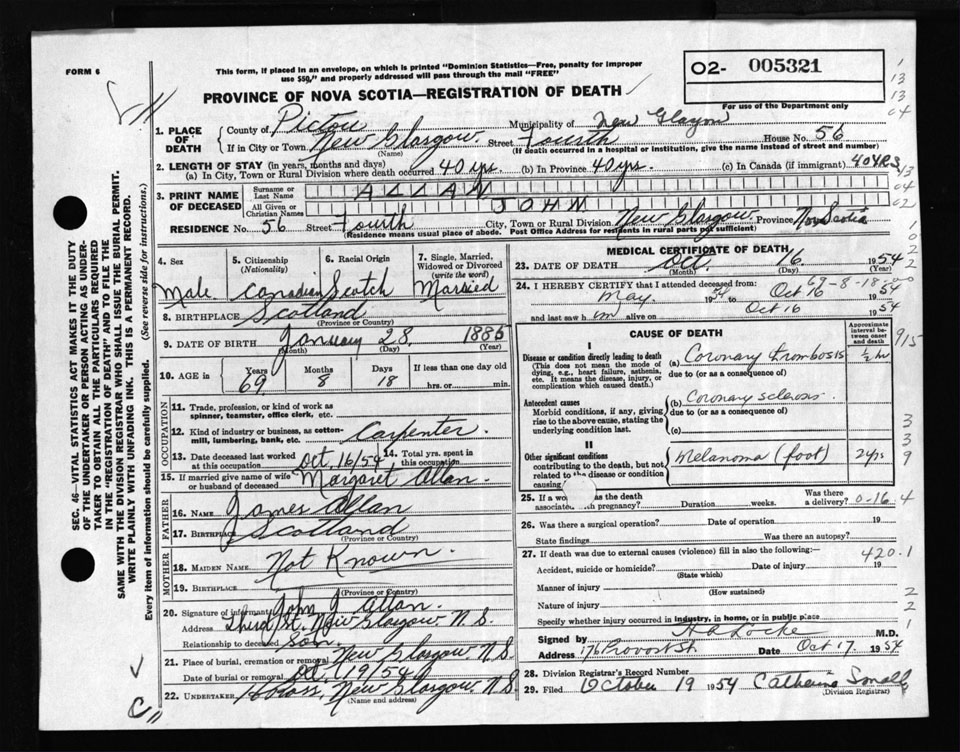 FORM 6
This form, if placed in an envelope, on which is printed "Dominion Statistics—Free, penalty for improper
use $50," and properly addressed will pass through the mail "FREE"
PROVINCE OF NOVA SCOTIA—REGISTRATION OF DEATH
O2- 005321
For use of the Department only
SEC. 46—VITAL STATISTICS ACT MAKES IT THE DUTY
OF THE UNDERTAKER OR PERSON ACTING AS UNDER-
TAKER TO OBTAIN ALL THE PARTICULARS REQUIRED
IN THE "REGISTRATION OF DEATH" AND TO FILE THE
SAME WITH THE DIVISION REGISTRAR WHO SHALL ISSUE THE BURIAL PERMIT.
WRITE PLAINLY WITH UNFADING INK. THIS IS A PERMANENT RECORD.
Every item of information should be carefully supplied. (See reverse side for instructions.)
1. PLACE OF DEATH County of Pictou Municipality of New Glasgow
If in City or Town New Glasgow (Name) Street Fourth House No. 56
(If death occurred in a hospital or institution, give the name instead of street and number)
2. LENGTH OF STAY (in years, months and days)
(a) In City, Town or Rural Division where death occurred 40 yrs. (b) In Province 40 yrs. (c) In Canada (if immigrant) 40 YRS
3. PRINT NAME OF DECEASED Surname or Last Name ALLAN
All Given or Christian Names JOHN
RESIDENCE No. 56 Street Fourth City, Town or Rural Division New Glasgow Province Nova Scotia
(Residence means usual place of abode. Post Office Address for residents in rural parts not sufficient)
4. Sex Male
5. Citizenship (Nationality) Canadian
6. Racial Origin Scotch
7. Single, Married, Widowed or Divorced (write the word) Married
8. BIRTHPLACE Scotland
(Province or Country)
9. DATE OF BIRTH January 28 1885
(Month) (Day) (Year)
10. AGE in Years 69 Months 8 Days 18 If less than one day hrs. or min.
OCCUPATION
11. Trade, profession, or kind of work as
spinner, teamster, office clerk, etc.
12. Kind of industry or business, as cotton-
mill, lumbering, bank, etc. Carpenter.
13. Date deceased last worked at this occupation Oct. 16/54 14. Total yrs. spent in this occupation
15. If married give name of wife or husband of deceased Margaret Allan.
FATHER
16. Name James Allan
17. Birthplace Scotland
(Province or Country)
MOTHER
18. Maiden Name Not Known.
19. Birthplace
(Province or Country)
20. Signature of informant John J. Allan.
Address Third St. New Glasgow N.S.
Relationship to deceased Son.
21. Place of burial, cremation or removal New Glasgow. N.S.
Date of burial or removal Oct. 19/54
22. Undertaker New Glasgow. N.S.
(Name and address)
MEDICAL CERTIFICATE OF DEATH
23. DATE OF DEATH Oct. 16 1954
(Month) (Day) (Year)
69-8-18
24. I HEREBY CERTIFY that I attended deceased from:
May 1954 to Oct 16 1954
and last saw him alive on Oct 16 1954
CAUSE OF DEATH
Approximate interval between onset and death
I
Disease or condition directly leading to death
(This does not mean the mode of
dying, e.g., heart failure, asthenia,
etc. It means the disease, injury, or
complication which caused death.)
(a) Coronary thrombosis ½ hr
due to (or as a consequence of)
Antecedent causes
Morbid conditions, if any, giving
rise to the above cause, stating the
underlying condition last.
(b) Coronary sclerosis.
due to (or as a consequence of)
(c)
II
Other significant conditions
contributing to the death, but not
related to the disease or condition
causing
Melanoma (foot) 2 yrs
25. If a wo as the death
associate th pregnancy? Duration weeks. Was there a delivery? 0-16.4
26. Was there a surgical operation? Date of operation 19
State findings Was there an autopsy?
27. If death was due to external causes (violence) fill in also the following:— 420.1
Accident, suicide or homicide? Date of injury 19
(State which)
Manner of injury
(How sustained)
Nature of injury
Specify whether injury occurred in industry, in home, or in public place
Signed by H A Locke M.D.
Address 176 Provost St Date Oct 17 1954
28. Division Registrar's Record Number
29. Filed October 19 1954 Catherine Small
(Division Registrar)